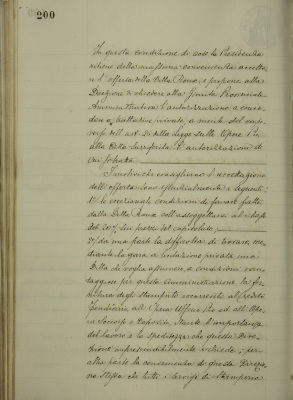 200
In questa condizione di cose la Presidenza
ritiene della massima convenienza accetta
re l'offerta della Ditta e propone alla
Direzione di chiedere alla Giunta Provinciale
Amministrativa l'autorizzazione a conce
dere a trattative private, a mente del
dell'art. 26 della Legge sulle Opere Pie
alla Ditta l'autorizzazione di
cui sopra
I motivi che consigliano l'accettazione
dell'offerta sono essenzialmente i seguenti:
1º/ le eccezionali condizioni di favore fatte
dalla Ditta coll'assoggettarsi al ribasso
del 20% sui prezzi del capitolato;
2º/ da una parte la difficoltà di trovare, me
diante la gara a licitazione privata una
Ditta che voglia assumere, a condizioni van
taggiose per questa Amministrazione la for
nitura degli stampati occorrenti all'
all'
e l'importanza
del lavoro e la speditezza che questa Dire
zione imprescindibilmente richiede, per
altra parte la convenienza di questa Direzio
ne stessa che tutti i servizi di Stamperia